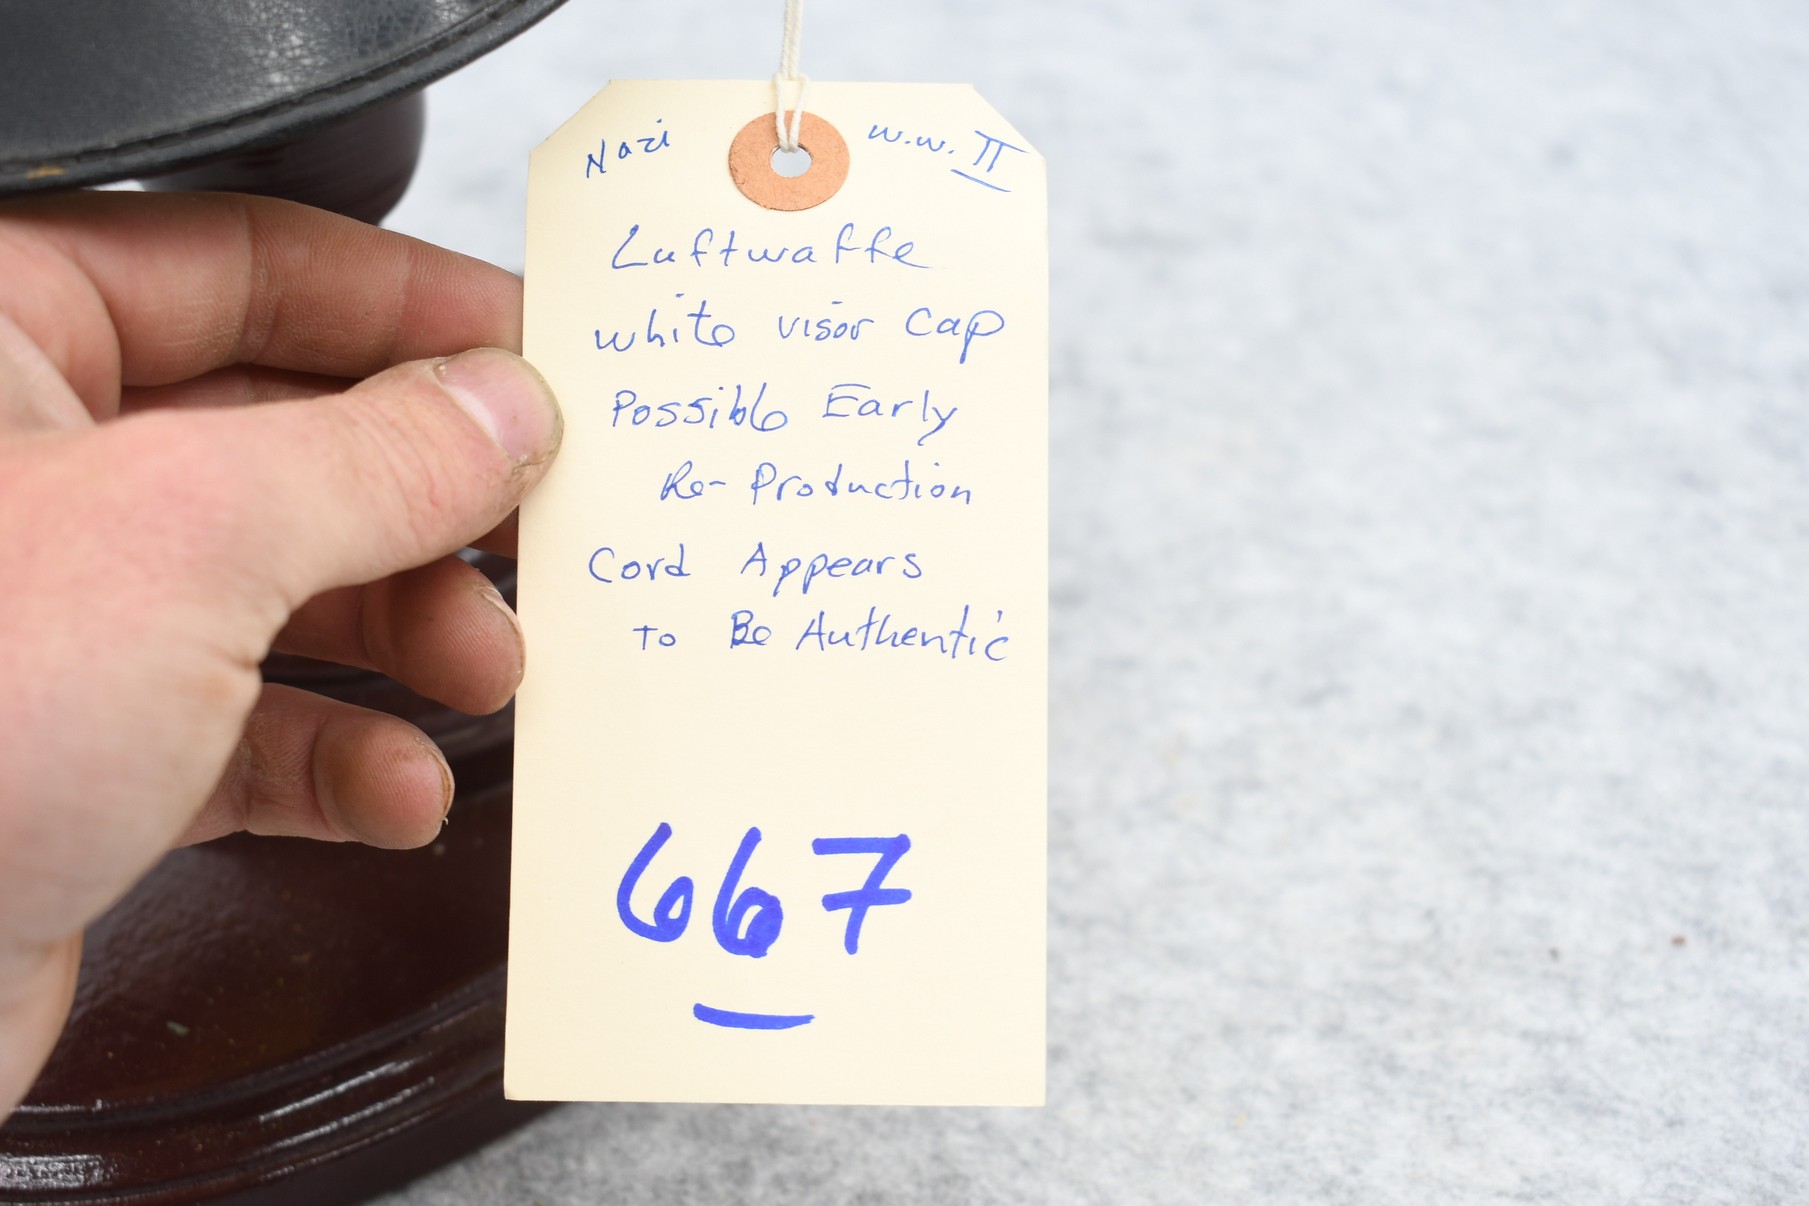 Nazi W.W. II
Luftwaffe
white visor cap
Possible Early
Re-Production
Cord Appears
To Be Authentic
667